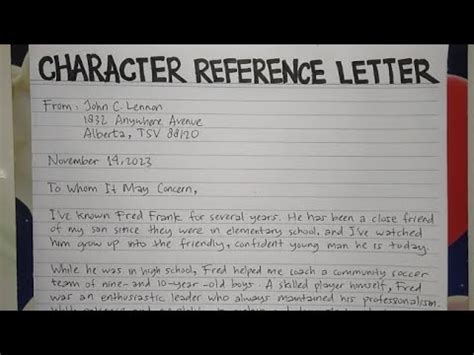 CHARACTER REFERENCE LETTER
From: John C. Lennon
1832 Anywhere Avenue
Alberta, TSV 88120
November 19, 2023
To Whom It May Concern,
I've known Fred Frank for several years. He has been a close friend
of my son since they were in elementary school, and I've watched
him grow up into the friendly, confident young man he is today.
While he was in high school, Fred helped me coach a community soccer
team of nine- and 10-year-old boys. A skilled player himself, Fred
was an enthusiastic leader who always maintained his professionalism.